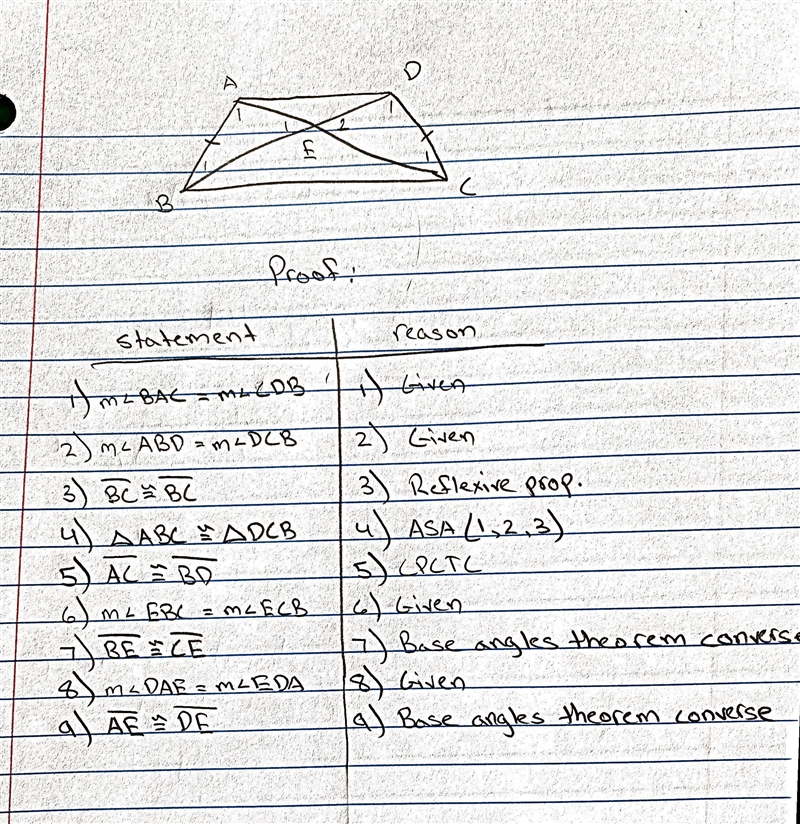 A D
1 1 1 2 1
1 E 1
B C
Proof:
statement reason
1) m∠BAC = m∠CDB 1) Given
2) m∠ABD = m∠DCB 2) Given
3) BC ≅ BC 3) Reflexive prop.
4) △ABC ≅ △DCB 4) ASA (1,2,3)
5) AC ≅ BD 5) CPCTC
6) m∠EBC = m∠ECB 6) Given
7) BE ≅ CE 7) Base angles theorem converse
8) m∠DAE = m∠EDA 8) Given
9) AE ≅ DE 9) Base angles theorem converse